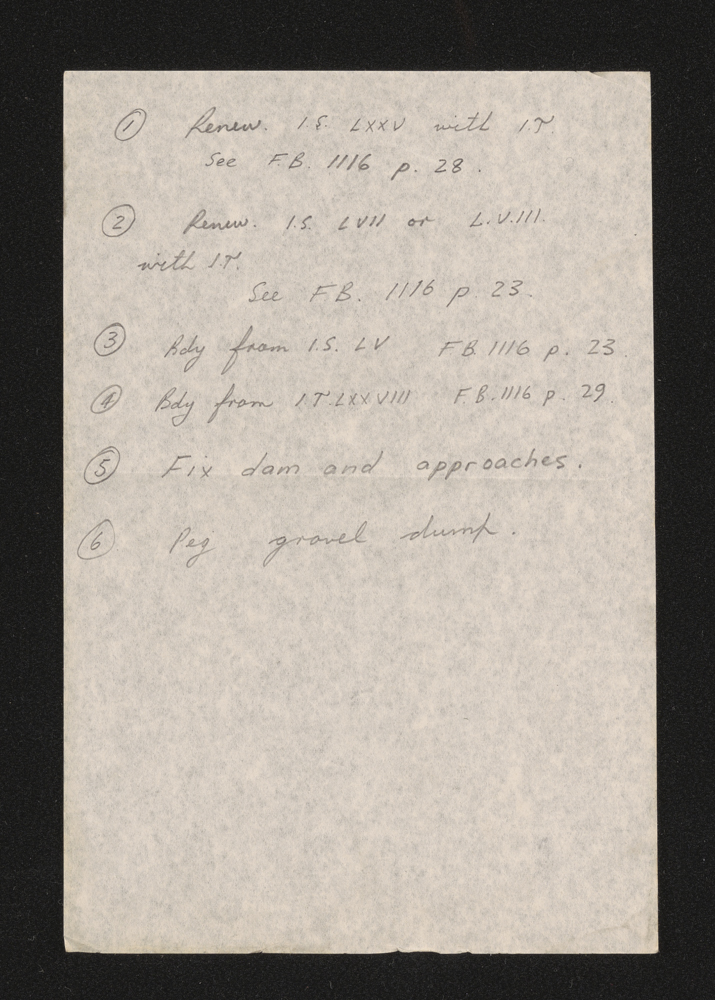 ① Renew. I.S. LXXV with I.T.
See F.B. 1116 p. 28.
② Renew. I.S. LVII or L.V.III.
with I.T.
See F.B. 1116 p. 23.
③ Bdy from I.S. LV F.B. 1116 p. 23.
④ Bdy from I.T. LXXVIII F.B. 1116 p. 29.
⑤ Fix dam and approaches.
⑥ Peg gravel dump.